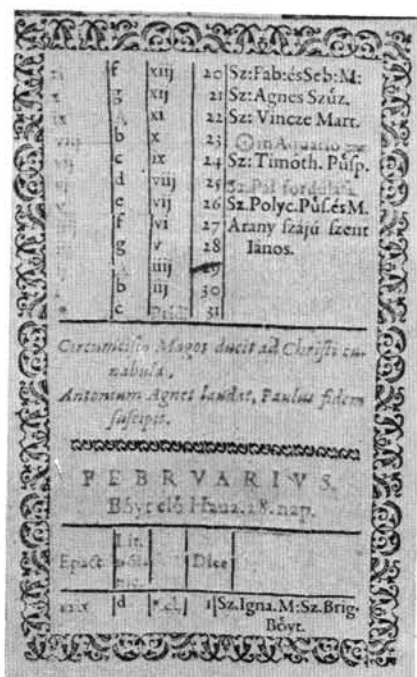 xi f xiij 20 Sz: Fab: ésSeb: M:
x g xij 21 Sz: Agnes Szűz.
ix A xi 22 Sz: Vincze Mart.
viij b x 23 in Aquario
vij c ix 24 Sz: Timóth. Půſp.
vj d viij 25 Sz. Pál fordúláſa.
v e vij 26 Sz. Polyc. Půſ. és M.
f vi 27 Arany ſzájú ſzent
g v 28 Iános.
ij A iiij 29
b iij 30
c 31
Circumciſio Magos ducit ad Chriſti cu-
nabula.
Antonium Agnes laudat, Paulus fidem
ſuſcipit.
FEBRVARIVS.
Bőyt elő Haua. 28. nap.
Lit.
Epact
xxix d 1 Sz. Igna. M: Sz. Brig.
Bőyt.